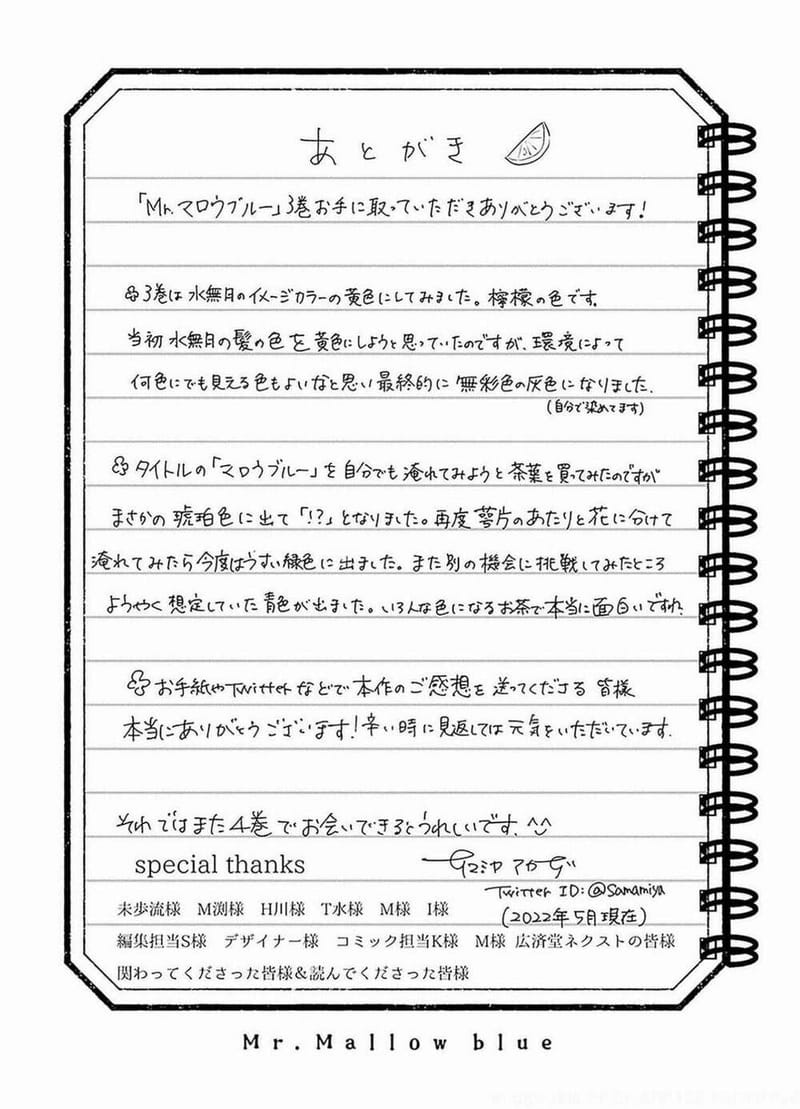 あとがき
「Mr.マロウブルー」3巻お手に取っていただきありがとうございます!
3巻は水無月のイメージカラーの黄色にしてみました。檸檬の色です。
当初水無月の髪の色を黄色にしようと思っていたのですが、環境によって
何色にでも見える色もよいなと思い最終的に無彩色の灰色になりました。
(自分で染めてます)
タイトルの「マロウブルー」を自分でも淹れてみようと茶葉を買ってみたのですが
まさかの琥珀色に出て「!?」となりました。再度萼片のあたりと花に分けて
淹れてみたら今度はうすい緑色に出ました。また別の機会に挑戦してみたところ
ようやく想定していた青色が出ました。いろんな色になるお茶で本当に面白いですね。
お手紙やTwitterなどで本作のご感想を送ってくださる皆様
本当にありがとうございます!辛い時に見返しては元気をいただいています。
それではまた4巻でお会いできるとうれしいです。^^
special thanks
Twitter ID:@Samamiya
(2022年5月現在)
未歩流様 M渕様 H川様 T水様 M様 I様
編集担当S様 デザイナー様 コミック担当K様 M様 広済堂ネクストの皆様
関わってくださった皆様&読んでくださった皆様
Mr.Mallow blue